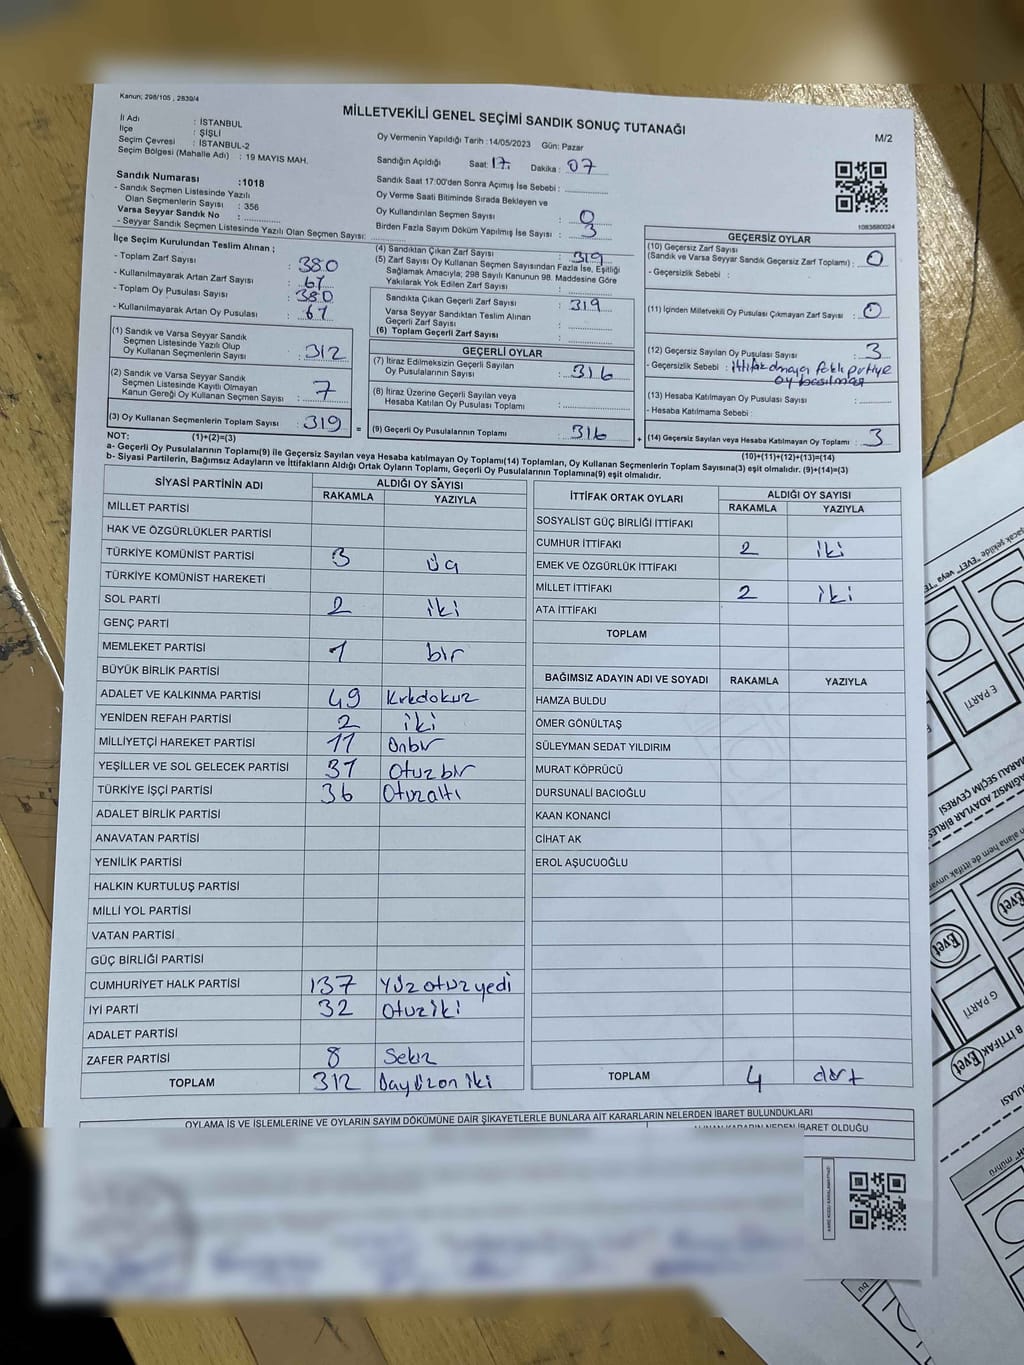 Kanun: 298/105 , 2839/4
MİLLETVEKİLİ GENEL SEÇİMİ SANDIK SONUÇ TUTANAĞI
M/2
İl Adı : İSTANBUL
İlçe : ŞİŞLİ
Seçim Çevresi : İSTANBUL-2
Seçim Bölgesi (Mahalle Adı) : 19 MAYIS MAH.
Sandık Numarası :1018
- Sandık Seçmen Listesinde Yazılı
Olan Seçmenlerin Sayısı : 356
Varsa Seyyar Sandık No :
- Seyyar Sandık Seçmen Listesinde Yazılı Olan Seçmenlerin Sayısı:
Oy Vermenin Yapıldığı Tarih :14/05/2023 Gün: Pazar
Sandığın Açıldığı Saat: 17 Dakika : 07
Sandık Saat 17:00'den Sonra Açılmış İse Sebebi :
Oy Verme Saati Bitiminde Sırada Bekleyen ve
Oy Kullandırılan Seçmen Sayısı : 0
Birden Fazla Sayım Döküm Yapılmış İse Sayısı : 3
1083680024
İlçe Seçim Kurulundan Teslim Alınan ;
- Toplam Zarf Sayısı : 380
- Kullanılmayarak Artan Zarf Sayısı : 61
- Toplam Oy Pusulası Sayısı : 380
- Kullanılmayarak Artan Oy Pusulası : 61
(1) Sandık ve Varsa Seyyar Sandık
Seçmen Listesinde Yazılı Olup
Oy Kullanan Seçmenlerin Sayısı : 312
(2) Sandık ve Varsa Seyyar Sandık
Seçmen Listesinde Kayıtlı Olmayan
Kanun Gereği Oy Kullanan Seçmen Sayısı : 7
(3) Oy Kullanan Seçmenlerin Toplam Sayısı : 319
(4) Sandıktan Çıkan Zarf Sayısı : 319
(5) Zarf Sayısı Oy Kullanan Seçmen Sayısından Fazla İse, Eşitliği
Sağlamak Amacıyla; 298 Sayılı Kanunun 98. Maddesine Göre
Yakılarak Yok Edilen Zarf Sayısı :
Sandıkta Çıkan Geçerli Zarf Sayısı : 319
Varsa Seyyar Sandıktan Teslim Alınan
Geçerli Zarf Sayısı :
(6) Toplam Geçerli Zarf Sayısı :
GEÇERLİ OYLAR
(7) İtiraz Edilmeksizin Geçerli Sayılan
Oy Pusulalarının Sayısı : 316
(8) İtiraz Üzerine Geçerli Sayılan veya
Hesaba Katılan Oy Pusulası Toplamı :
= (9) Geçerli Oy Pusulalarının Toplamı : 316 +
GEÇERSİZ OYLAR
(10) Geçersiz Zarf Sayısı
(Sandık ve Varsa Seyyar Sandık Geçersiz Zarf Toplamı) : 0
- Geçersizlik Sebebi :
(11) İçinden Milletvekili Oy Pusulası Çıkmayan Zarf Sayısı : 0
(12) Geçersiz Sayılan Oy Pusulası Sayısı : 3
- Geçersizlik Sebebi : ittifak olmayan farklı partiye
oy basılması
(13) Hesaba Katılmayan Oy Pusulası Sayısı :
- Hesaba Katılmama Sebebi :
(14) Geçersiz Sayılan veya Hesaba Katılmayan Oy Toplamı : 3
NOT: (1)+(2)=(3)
(10)+(11)+(12)+(13)=(14)
a- Geçerli Oy Pusulalarının Toplamı(9) ile Geçersiz Sayılan veya Hesaba katılmayan Oy Toplamı(14) Toplamları, Oy Kullanan Seçmenlerin Toplam Sayısına(3) eşit olmalıdır. (9)+(14)=(3)
b- Siyasi Partilerin, Bağımsız Adayların ve İttifakların Aldığı Ortak Oyların Toplamı, Geçerli Oy Pusulalarının Toplamına(9) eşit olmalıdır.
SİYASİ PARTİNİN ADI ALDIĞI OY SAYISI
RAKAMLA YAZIYLA
MİLLET PARTİSİ
HAK VE ÖZGÜRLÜKLER PARTİSİ
TÜRKİYE KOMÜNİST PARTİSİ 3 üç
TÜRKİYE KOMÜNİST HAREKETİ
SOL PARTİ 2 iki
GENÇ PARTİ
MEMLEKET PARTİSİ 1 bir
BÜYÜK BİRLİK PARTİSİ
ADALET VE KALKINMA PARTİSİ 49 Kırkdokuz
YENİDEN REFAH PARTİSİ 2 iki
MİLLİYETÇİ HAREKET PARTİSİ 11 Onbir
YEŞİLLER VE SOL GELECEK PARTİSİ 31 Otuzbir
TÜRKİYE İŞÇİ PARTİSİ 36 Otuzaltı
ADALET BİRLİK PARTİSİ
ANAVATAN PARTİSİ
YENİLİK PARTİSİ
HALKIN KURTULUŞ PARTİSİ
MİLLİ YOL PARTİSİ
VATAN PARTİSİ
GÜÇ BİRLİĞİ PARTİSİ
CUMHURİYET HALK PARTİSİ 137 Yüzotuzyedi
İYİ PARTİ 32 Otuziki
ADALET PARTİSİ
ZAFER PARTİSİ 8 Sekiz
TOPLAM 312
İTTİFAK ORTAK OYLARI ALDIĞI OY SAYISI
RAKAMLA YAZIYLA
SOSYALİST GÜÇ BİRLİĞİ İTTİFAKI
CUMHUR İTTİFAKI 2 iki
EMEK VE ÖZGÜRLÜK İTTİFAKI
MİLLET İTTİFAKI 2 iki
ATA İTTİFAKI
TOPLAM
BAĞIMSIZ ADAYIN ADI VE SOYADI RAKAMLA YAZIYLA
HAMZA BULDU
ÖMER GÖNÜLTAŞ
SÜLEYMAN SEDAT YILDIRIM
MURAT KÖPRÜCÜ
DURSUNALİ BACIOĞLU
KAAN KONANCİ
CİHAT AK
EROL AŞUCUOĞLU
TOPLAM 4 dört
OYLAMA İŞ VE İŞLEMLERİNE VE OYLARIN SAYIM DÖKÜMÜNE DAİR ŞİKAYETLERLE BUNLARA AİT KARARLARIN NELERDEN İBARET BULUNDUKLARI
ALINAN KARARIN NEDEN İBARET OLDUĞU
E PARTİ
G PARTİ
Evet
Evet
Evet
B İTTİFAK